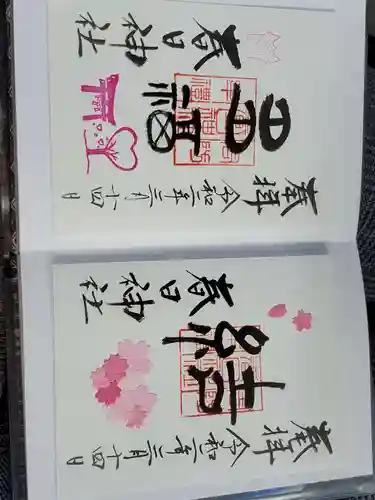 奉拝 令和二年三月十四日
結
春日神社
奉拝 令和二年三月十四日
福
春日神社